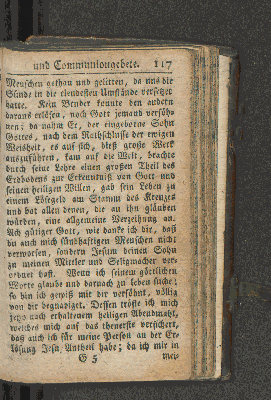 und Communiongebete. 117
Menschen gethan und gelitten, da uns die
Sünde in die elendesten Umstände versetzet
hatte. Kein Bruder konnte den andern
davons erlösen, noch Gott jemand versöh-
nen; da nahm Er, der eingeborne Sohn
Gottes, nach dem Rathschlusse der ewigen
Weisheit, es auf sich, dieß große Werk
auszuführen, kam auf die Welt, brachte
durch seine Lehre einen großen Theil des
Erdbodens zur Erkenntniß von Gott und
seinen heiligen Willen, gab sein Leben zu
einem Lösegeld am Stamm des Kreuzes
und bot allen denen, die an ihn glauben
würden, eine allgemeine Verzeihung an.
Ach gütiger Gott, wie danke ich dir, daß
du auch mich sündhaftigen Menschen nicht
verworfen, sondern Jesum deinen Sohn
zu meinen Mittler und Seligmacher ver-
ordnet hast. Wenn ich seinem göttlichen
Worte glaube und darnach zu leben suche;
so bin ich gewiß mit dir versöhnt, völlig
von dir begnadiget. Dessen tröste ich mich
jetzo nach erhaltenem heiligen Abendmahl,
welches mich auf das theuerste versichert,
daß auch ich für meine Person an der Er-
lösung Jesu Antheil habe; da ich mir in
G 5 mei-